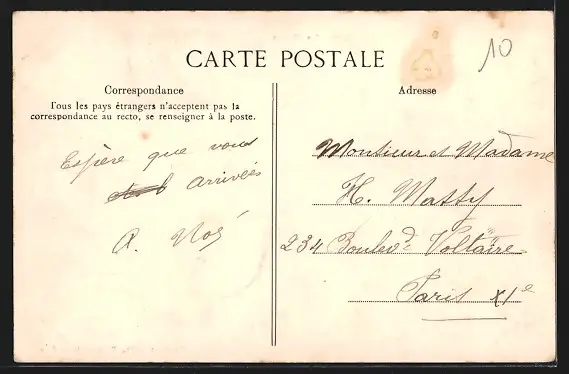 CARTE POSTALE
10
Correspondance
Tous les pays étrangers n'acceptent pas la
correspondance au recto, se renseigner à la poste.
Espère que vous
arrivées
A. Noé
Adresse
Monsieur et Madame
H. Matty
234 Boulevd Voltaire
Paris XIe